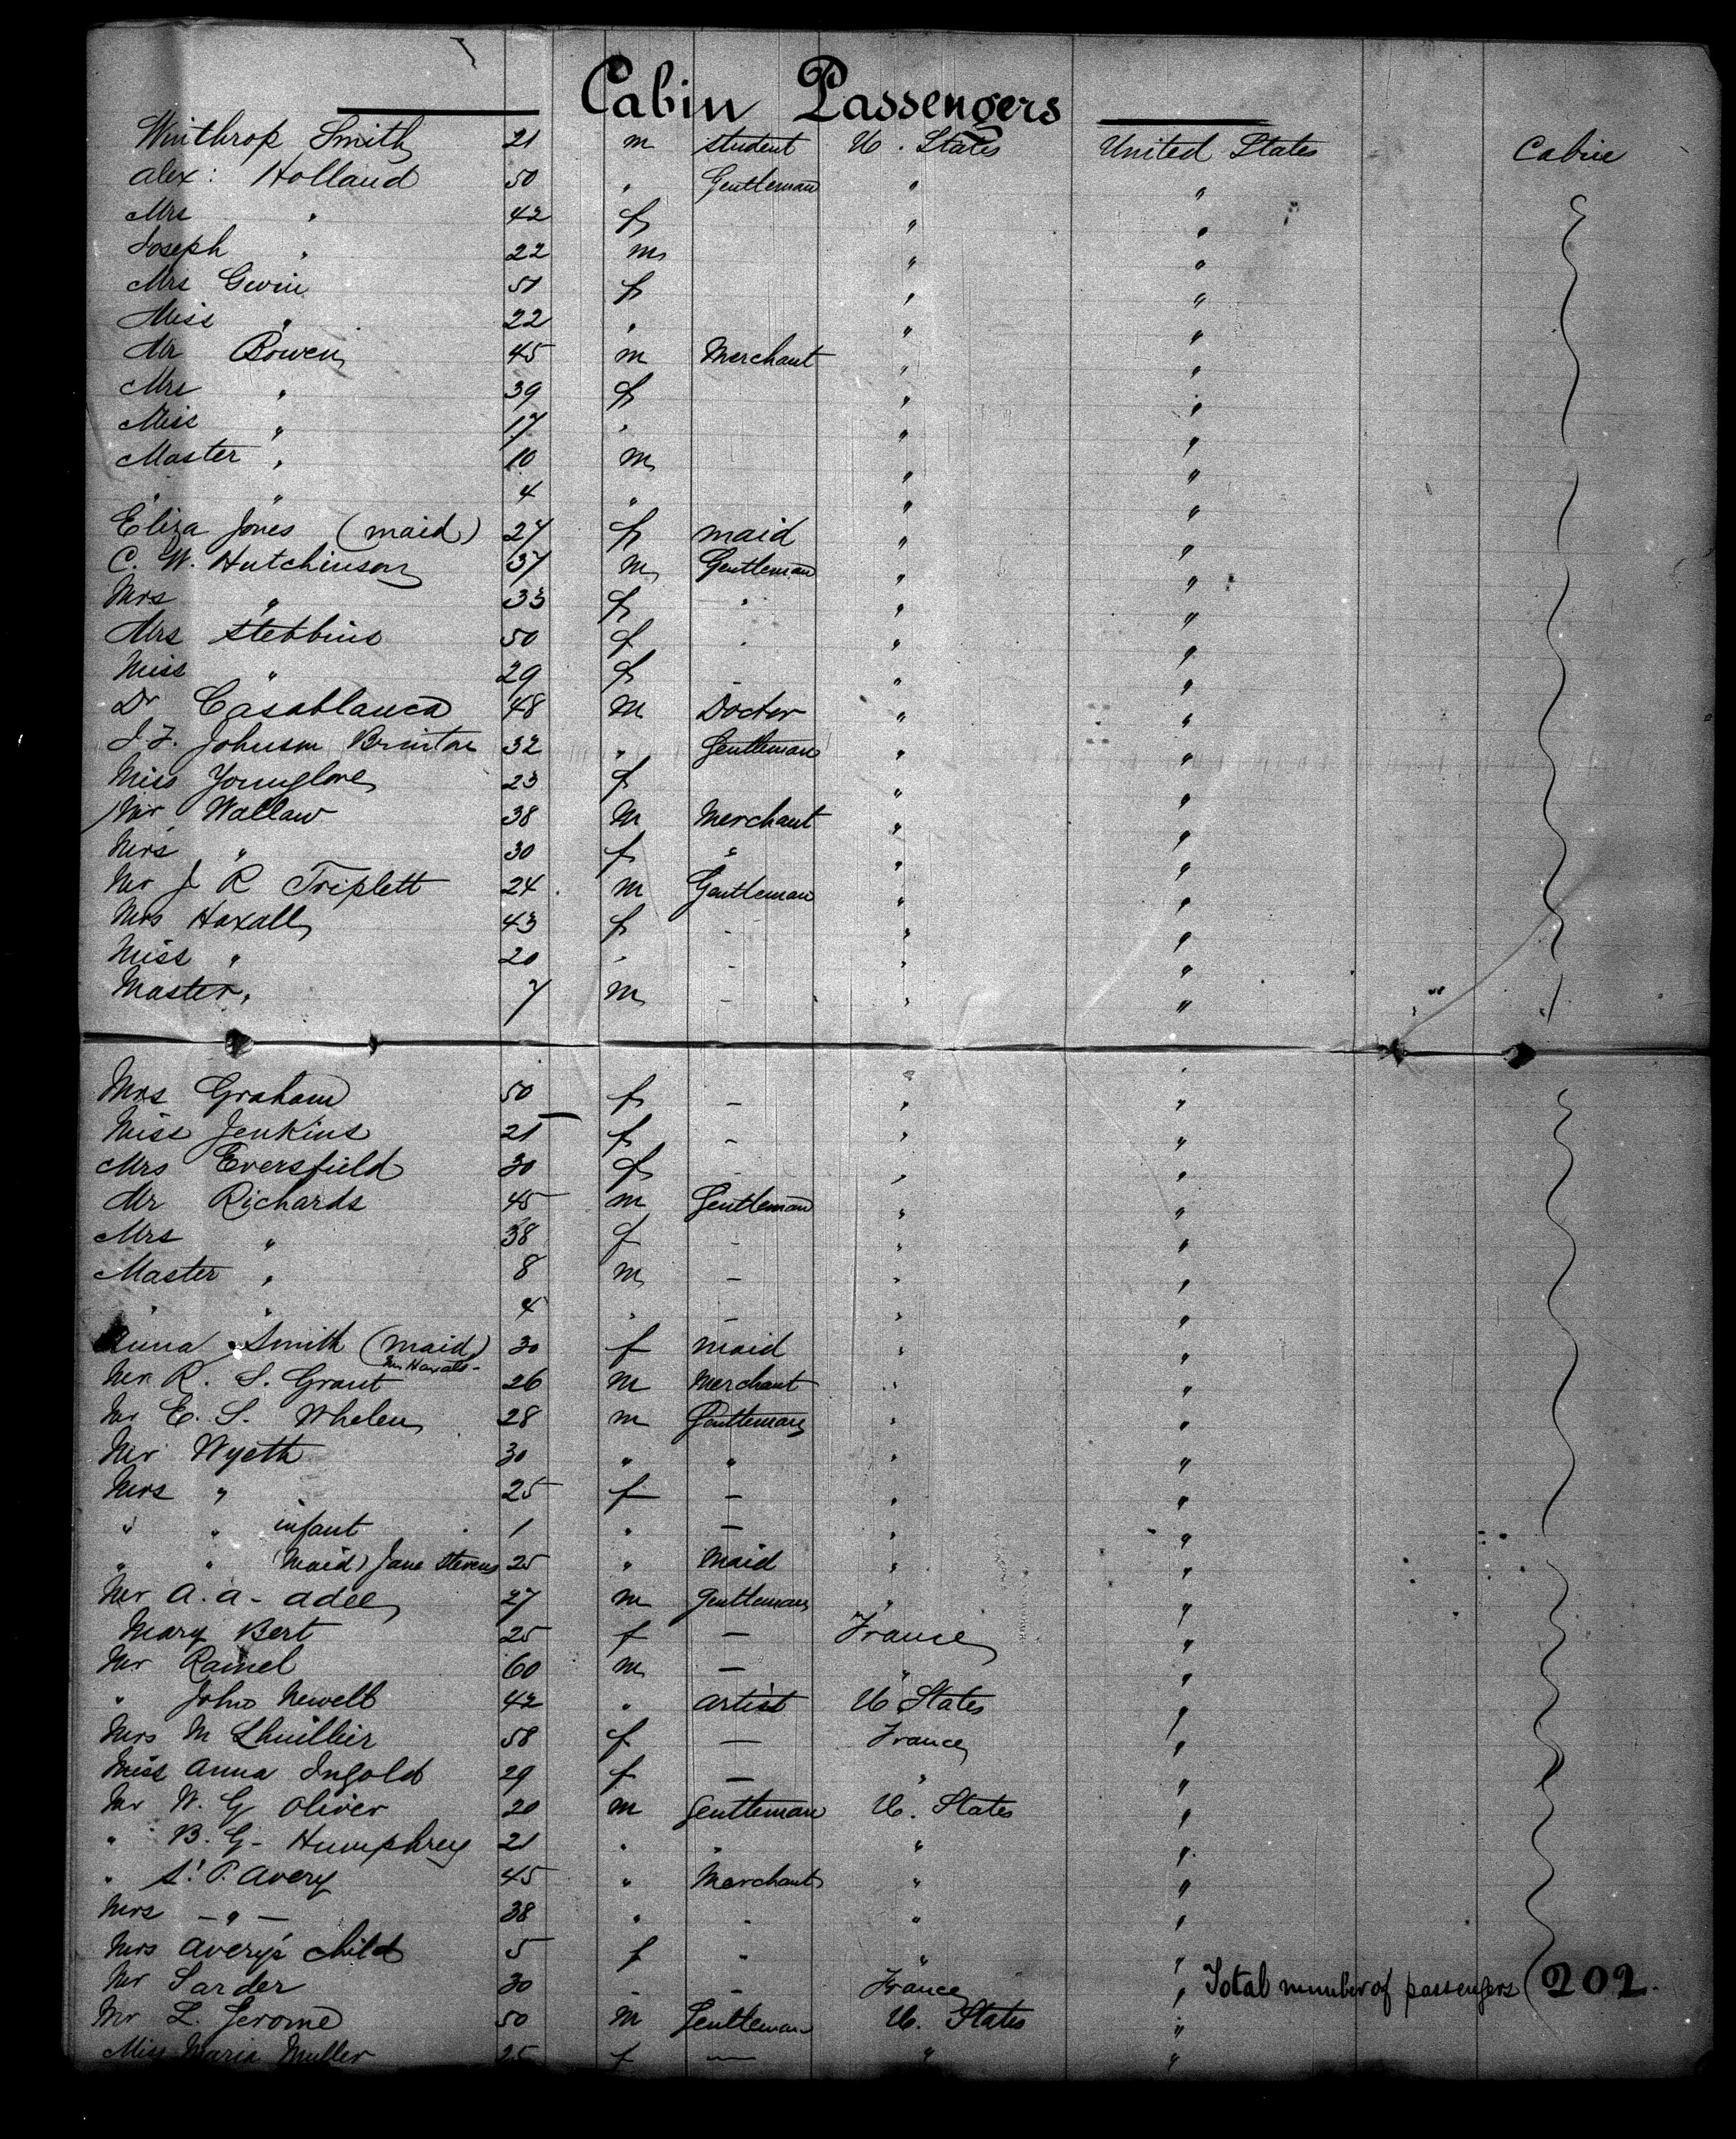 Cabin Passengers
Winthrop Smith 21 m student U. States United States Cabin
Alex: Holland 50 " Gentleman " "
Mrs " 42 f " "
Joseph " 22 m " "
Mrs Gwin f " "
Miss " 22 " " "
Mr Bowen 45 m Merchant " "
Mrs " 39 f " "
Miss " 17 " " "
Master " 10 m " "
" " 4 " " "
Eliza Jones (maid) 27 f maid " "
C. W. Hutchinson 37 m Gentleman " "
Mrs " 33 f " " "
Mrs Stebbins 50 f " " "
Miss " 29 f - " "
Dr Casablanca 48 m Doctor " "
Johnson Brinton 32 " Gentleman " "
Miss Younglove 23 f " "
Mr Wallaw 38 m Merchant " "
Mrs " 30 f " " "
Mr J R Triplett 24 m Gentleman " "
Mrs Haxall 43 f - " "
Miss " 20 " - " "
Master " 7 m - " "
Mrs Graham 50 f - " "
Miss Jenkins 21 f - " "
Mrs Eversfield 30 f - " "
Mr Richards 45 m Gentleman " "
Mrs " 38 f - " "
Master " 8 m - " "
" " 4 " - " "
Anna Smith (maid) 30 f maid " "
Mrs Haxalls -
Mr R. S. Grant 26 m Merchant " "
Mr E. S. Whelen 28 m Gentleman " "
Mr Wyeth 30 " " " "
Mrs " 25 f - " "
" " infant 1 " - " "
" " (Maid) Jane Stevens 25 " Maid " "
Mr A. A - Adee 27 m Gentleman " "
Mary Bert 25 f - France "
Mr Ramel 60 m - " "
" John Newell 42 " artist U States "
Mrs M Lhuillier 58 f - France "
Miss Anna Ingold 29 f - " "
Mr W. G Oliver 20 m Gentleman U. States "
" B. G - Humphrey 21 " " " "
" S. P. Avery 45 " Merchant " "
Mrs - " - 38 " " " "
Mrs Avery's child 5 f " " "
Mr Sarder 30 - - France " Total number of passengers 202.
Mr L. Jerome 50 m Gentleman U. States "
Miss Maria Muller 25 f - " "